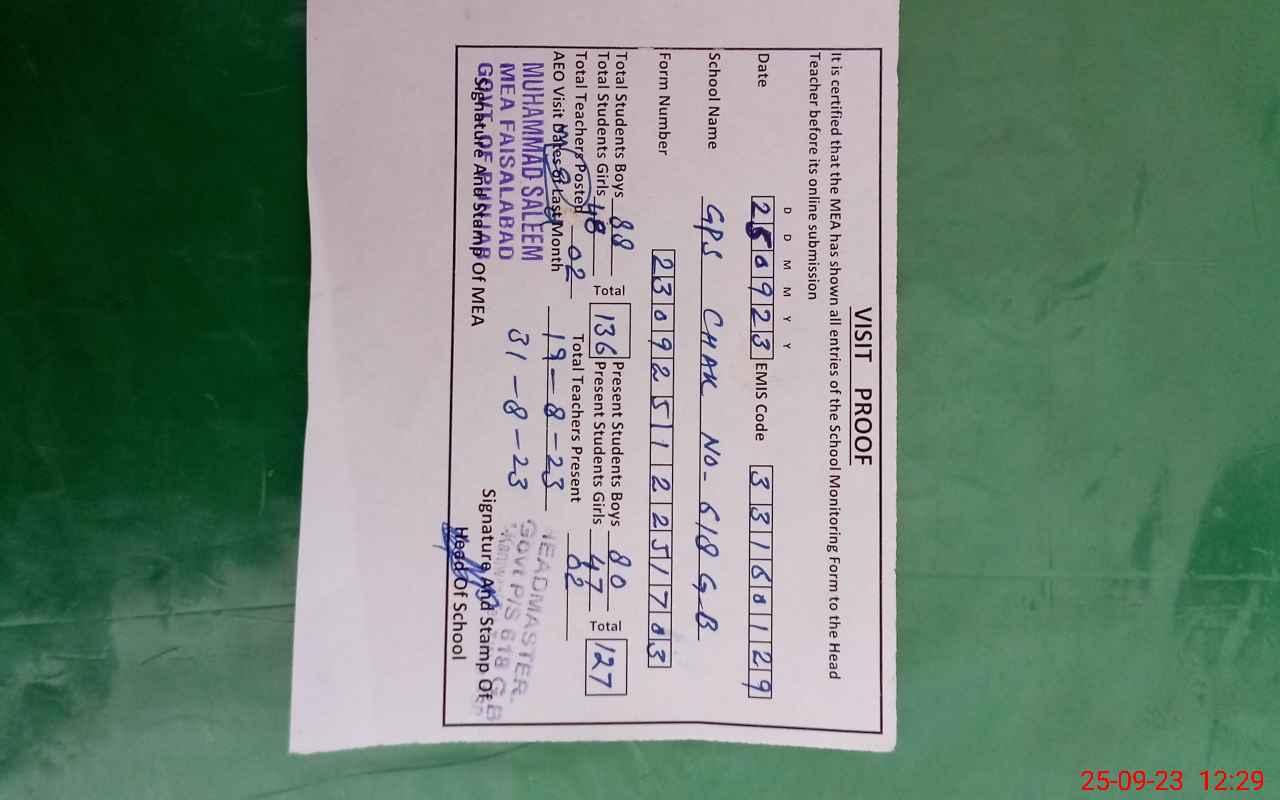 VISIT PROOF
It is certified that the MEA has shown all entries of the School Monitoring Form to the Head
Teacher before its online submission
D D M M Y Y
Date 250923 EMIS Code 33160129
School Name GPS CHAK NO- 618 G-B
Form Number 23092512251703
Total Students Boys 88 Present Students Boys 80
Total Students Girls 48 Total 136 Present Students Girls 47 Total 127
Total Teachers Posted 02 Total Teachers Present 02
AEO Visit Dates of Last Month 19-8-23
31-8-23
MUHAMMAD SALEEM
MEA FAISALABAD
GOVT. OF PUNJAB
Signature And Stamp Of MEA
HEADMASTER.
Govt P/S 618 G.B
Signature And Stamp Of
Head Of School
25-09-23 12:29